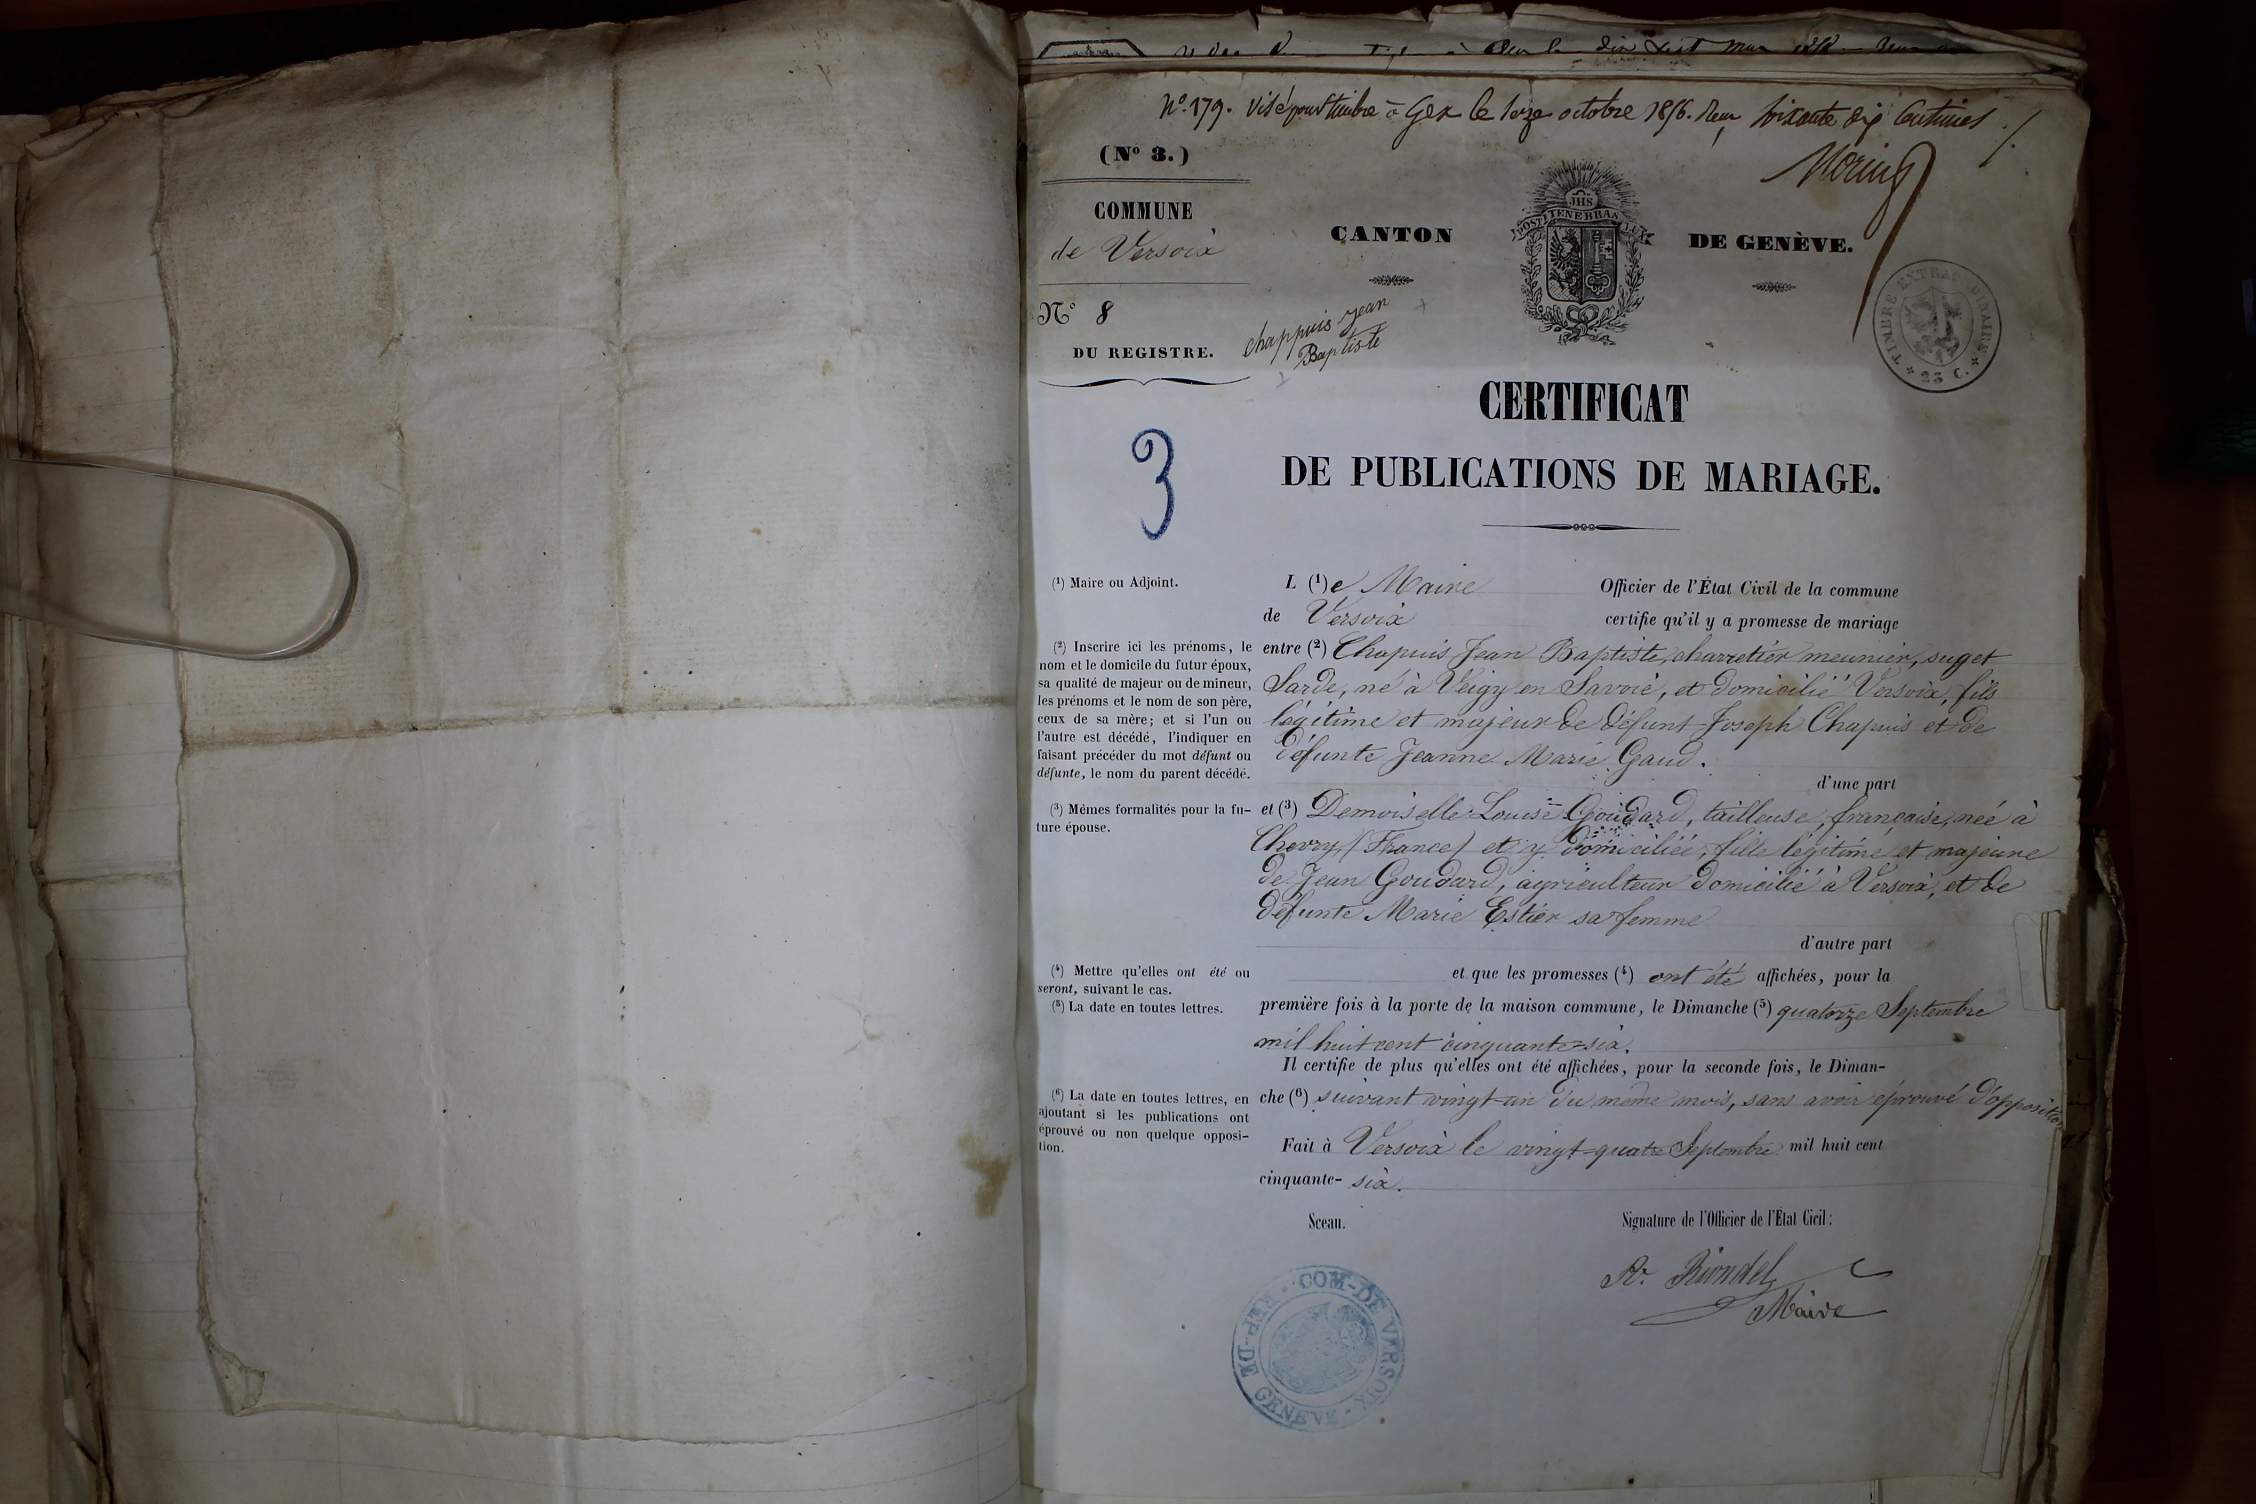 No. 179. Visé pour timbre à Gex le seize octobre 1856. Reçu soixante dix centimes ./.
(No 3.)
COMMUNE
de Versoix
No 8
DU REGISTRE.
chappuis jean
Baptiste
CANTON
JHS
POST TENEBRAS LUX
DE GENÈVE.
TIMBRE EXTRAORDINAIRE
* 25 C. *
CERTIFICAT
DE PUBLICATIONS DE MARIAGE.
3
(1) Maire ou Adjoint.
L (1) e Maire Officier de l'État Civil de la commune
de Versoix certifie qu'il y a promesse de mariage
(2) Inscrire ici les prénoms, le
nom et le domicile du futur époux,
sa qualité de majeur ou de mineur,
les prénoms et le nom de son père,
ceux de sa mère; et si l'un ou
l'autre est décédé, l'indiquer en
faisant précéder du mot défunt ou
défunte, le nom du parent décédé.
entre (2) Chapuis Jean Baptiste, charretier meunier, suget
Sarde, né à Veigy en Savoie, et domicilié Versoix, fils
légitime et majeur de défunt Joseph Chapuis et de
défunte Jeanne Marie Gaud.
d'une part
(3) Mêmes formalités pour la fu-
ture épouse.
et (3) Demoiselle Louise Goudard, tailleuse, française, née à
Chevry (France) et y domiciliée, fille légitime et majeure
de Jean Goudard, agriculteur domicilié à Versoix, et de
défunte Marie Estier sa femme
d'autre part
(4) Mettre qu'elles ont été ou
seront, suivant le cas.
(5) La date en toutes lettres.
et que les promesses (4) ont été affichées, pour la
première fois à la porte de la maison commune, le Dimanche (5) quatorze Septembre
mil huit cent cinquante-six.
Il certifie de plus qu'elles ont été affichées, pour la seconde fois, le Diman-
(6) La date en toutes lettres, en
ajoutant si les publications ont
éprouvé ou non quelque opposi-
tion.
che (6) suivant vingt-un du même mois, sans avoir éprouvé d'opposition
Fait à Versoix le vingt-quatre Septembre mil huit cent
cinquante- six.
Sceau.
Signature de l'Officier de l'État Civil:
Riondel
Maire
REP-DE GENEVE · COM-DE VERSOIX